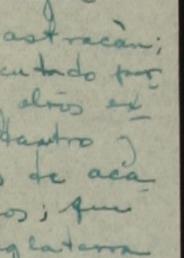 y
astracán;
cutado por
otros ex-
tantro y
de aca-
os; que
glaterra